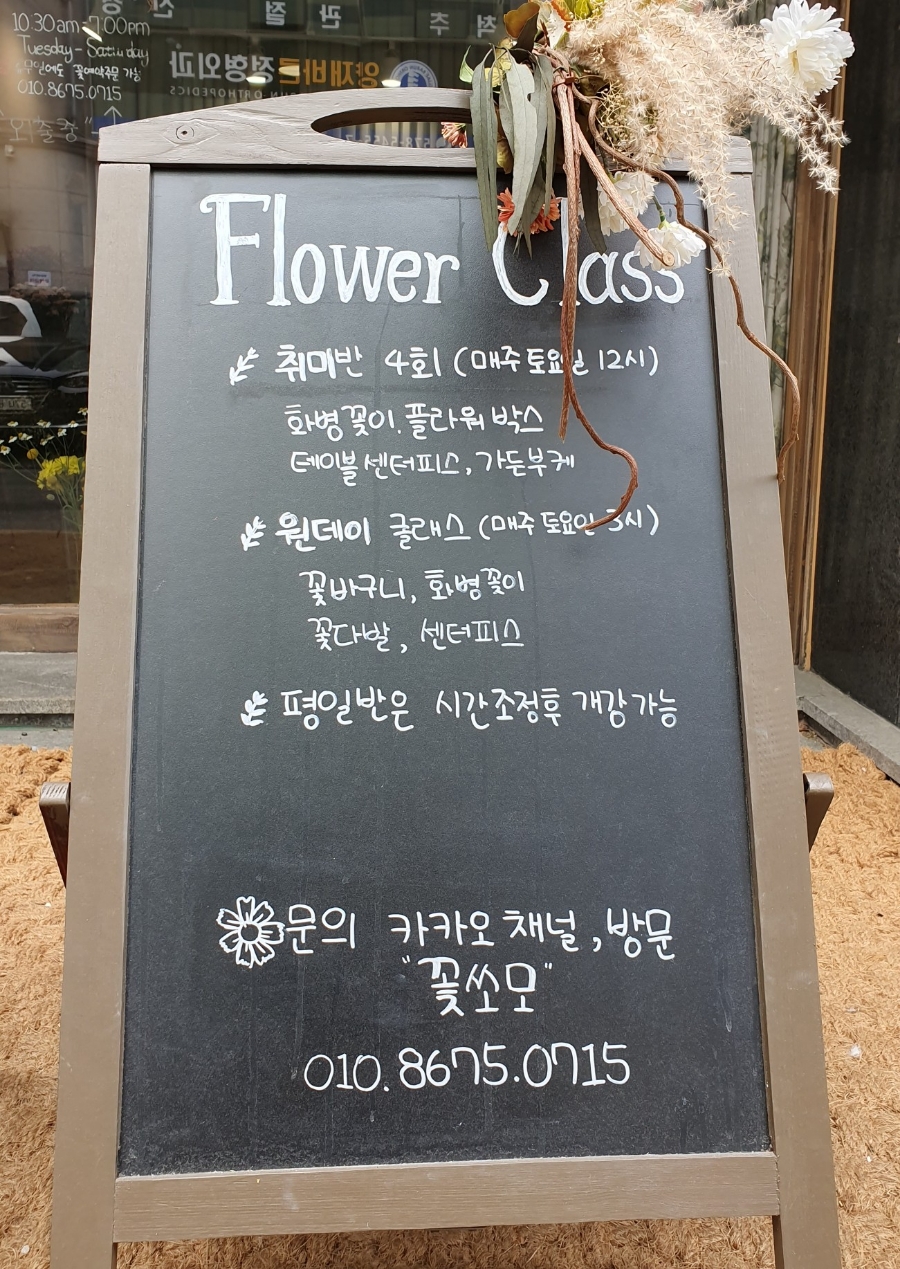 10.30am-7.00pm
Tuesday-Saturday
010.8675.0715
척추 관절
양재바른정형외과
Flower Class
취미반 4회 (매주 토요일 12시)
화병꽃이. 플라워 박스
테이블 센터피스, 가든부케
원데이 클래스 (매주 토요일 3시)
꽃바구니, 화병꽃이
꽃다발, 센터피스
평일반은 시간조정후 개강가능
문의 카카오 채널, 방문
"꽃쏘모"
010.8675.0715